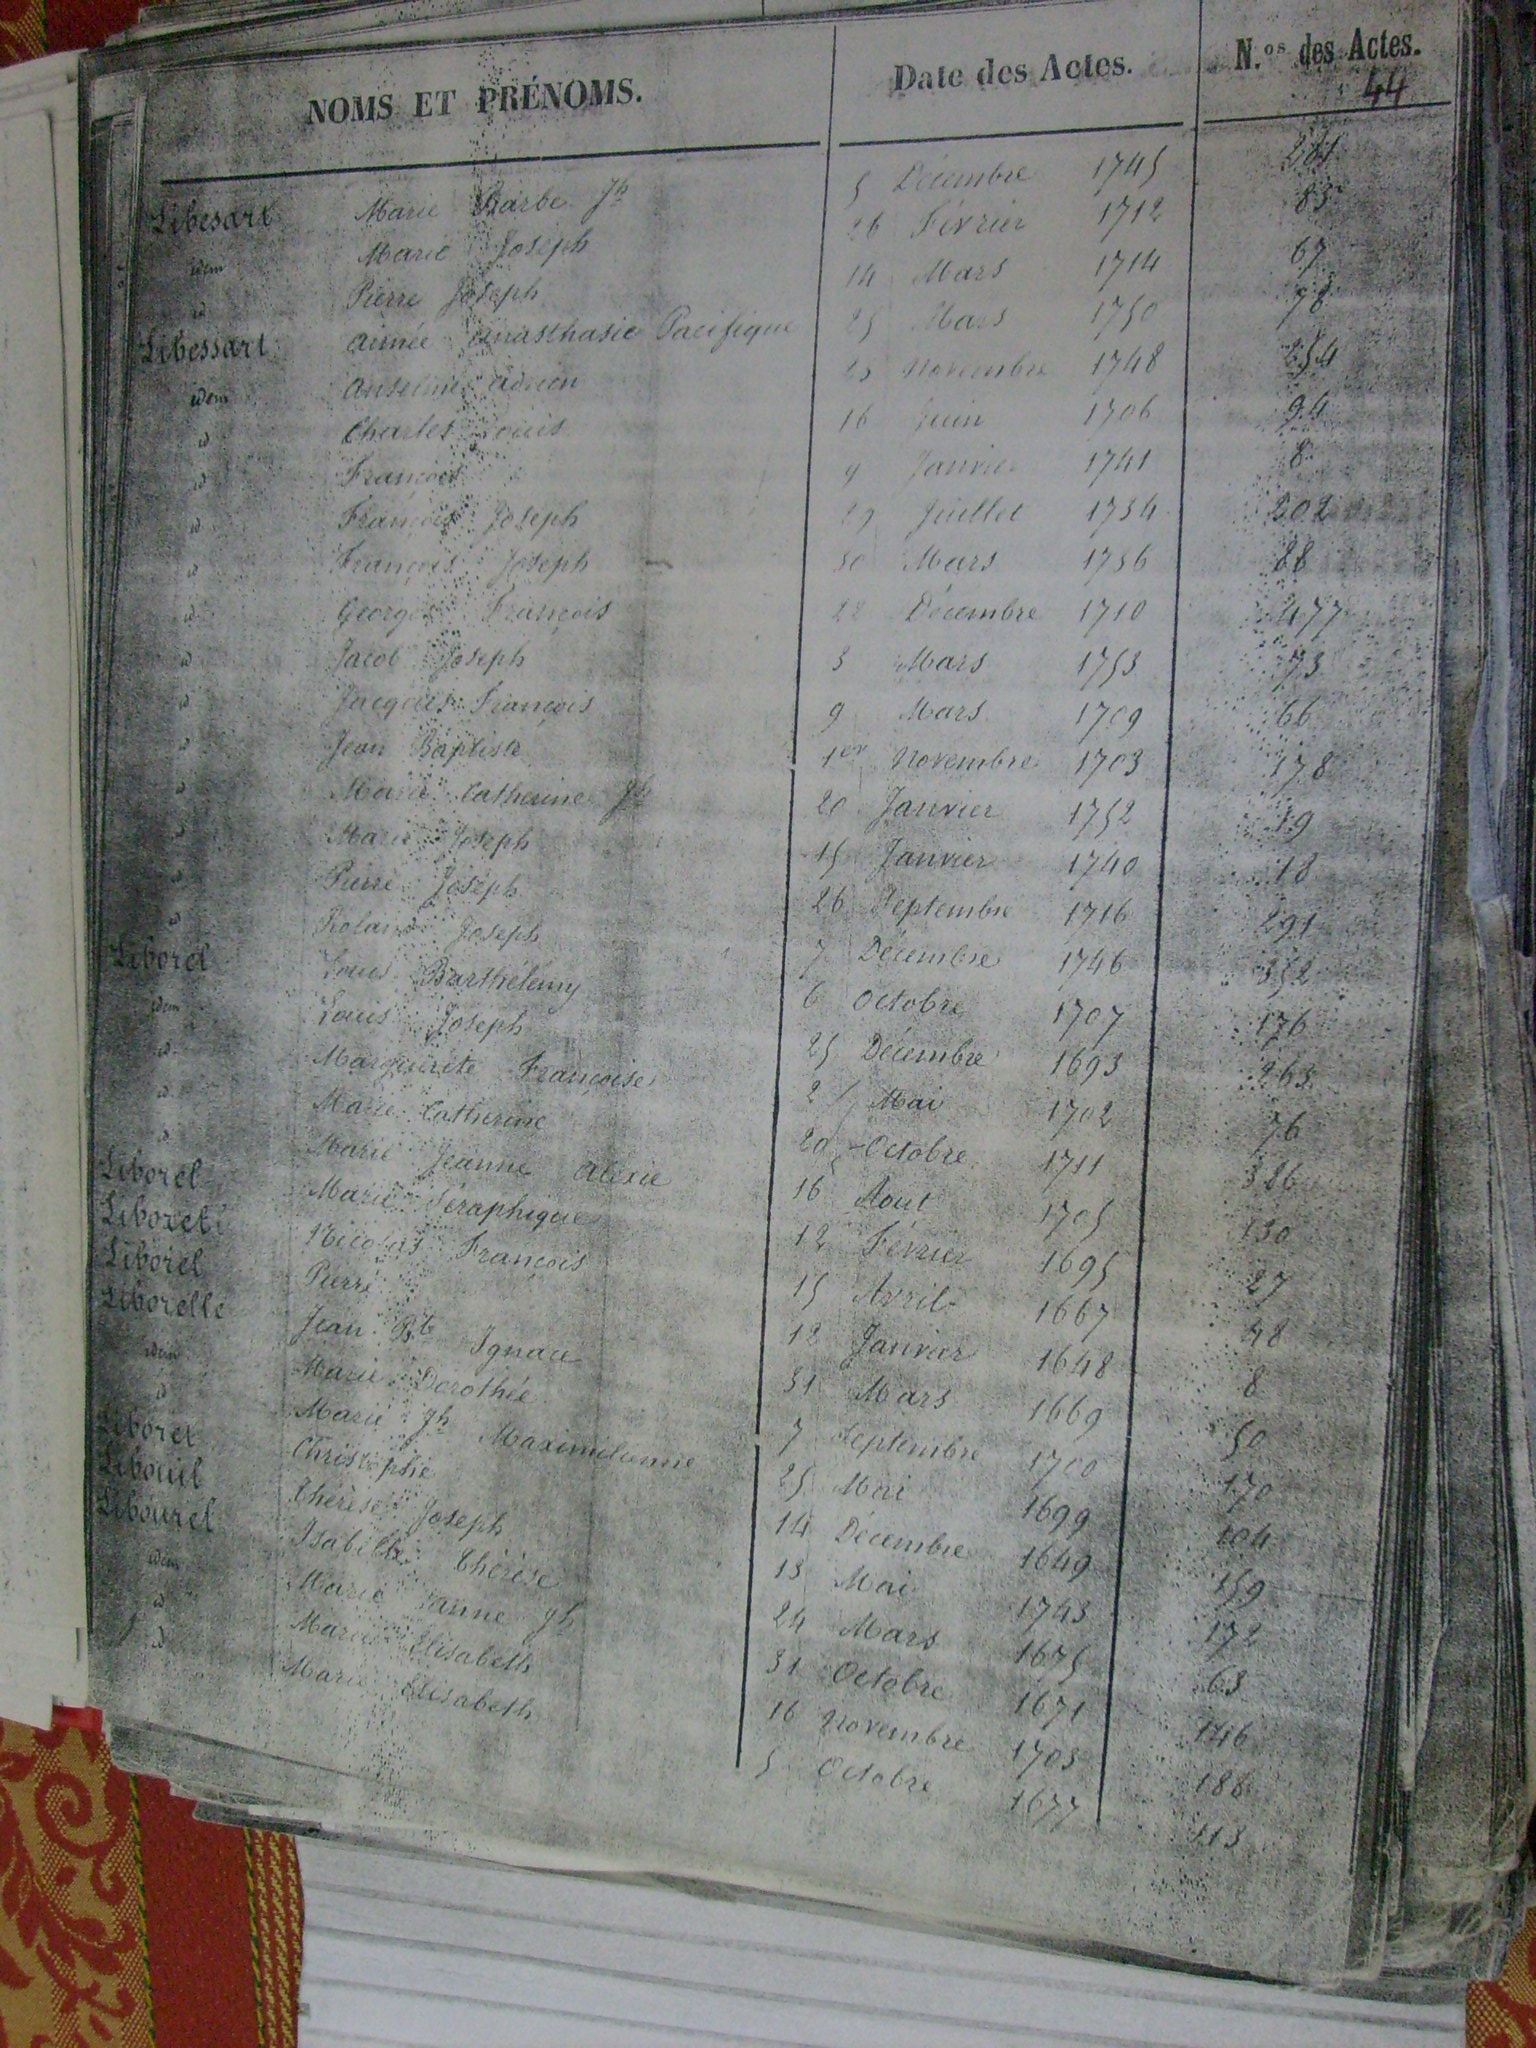 NOMS ET PRÉNOMS. Date des Actes. N.os des Actes.
44
Libesart Marie Barbe Jh 5 Décembre 1745 261
idem Marie Joseph 26 Février 1712 83
id Pierre Joseph 14 Mars 1714 67
Libessart Aimée Anasthasie Pacifique 25 Mars 1750 78
idem Anselme Adrien 23 Novembre 1748 354
id Charles Louis 16 Juin 1706 94
id François 9 Janvier 1741 8
id François Joseph 29 Juillet 1734 202
id François Joseph 30 Mars 1736 88
id Georges François 22 Décembre 1710 477
id Jacob Joseph 3 Mars 1753 73
id Jacques François 9 Mars 1709 66
id Jean Baptiste 1er Novembre 1703 178
id Marie Catherine Jh 20 Janvier 1752 19
id Marie Joseph 15 Janvier 1740 18
id Pierre Joseph 26 Septembre 1716 291
id Roland Joseph 7 Décembre 1746 352
Liborel Louis Barthélemy 6 Octobre 1707 176
idem Louis Joseph 25 Décembre 1693 263
id Marguerite Françoise 2 Mai 1702 76
id Marie Catherine 20 Octobre 1711 326
id Marie Jeanne Alexie 16 Aout 1705 130
Liborel Marie Séraphique 12 Février 1695 27
Liborel Nicolas François 15 Avril 1667 48
Liborel Pierre 12 Janvier 1648 8
Liborelle Jean Bte Ignace 31 Mars 1669 50
idem Marie Dorothée 7 Septembre 1700 170
id Marie Jh Maximilienne 25 Mai 1699 104
Liboret Christophe 14 Décembre 1649 159
Libouil Thérèse Joseph 13 Mai 1743 172
Libourel Isabelle Thérèse 24 Mars 1675 63
idem Marie Jeanne Jh 31 Octobre 1671 146
id Marie Elisabeth 16 Novembre 1703 186
id Marie Elisabeth 5 Octobre 1677 113